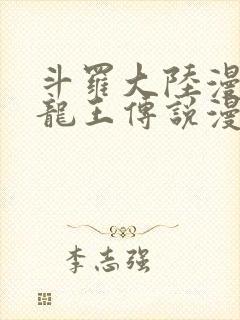 斗羅大陸漫
龍王傳說漫
李志强